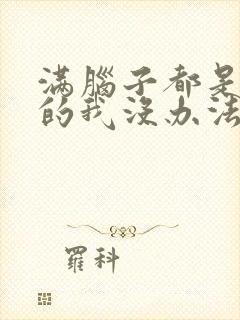 滿腦子都是
的我沒办法
羅科